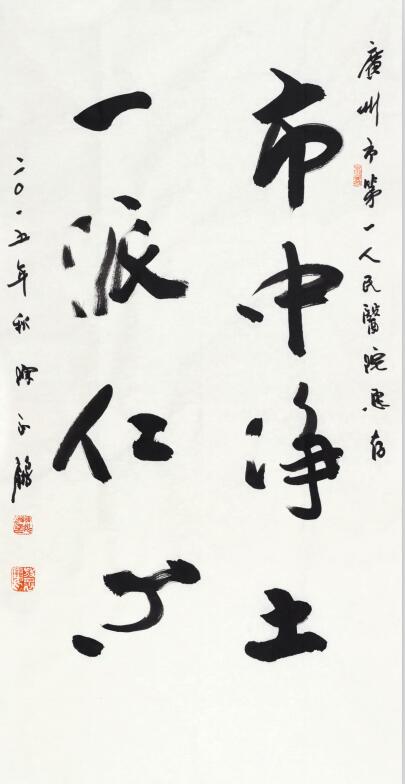 廣州市第一人民醫院惠存
市中净土
一派仁心
二〇一五年秋